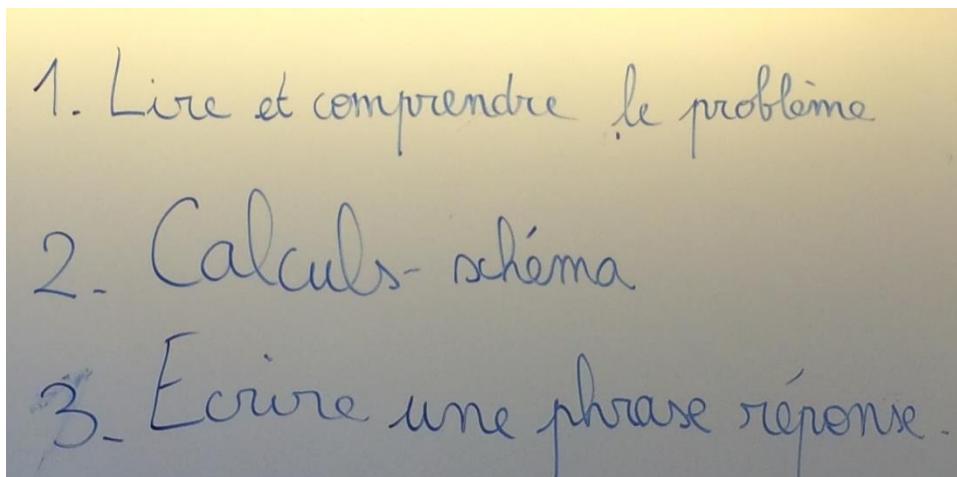 1. Lire et comprendre le problème
2. Calculs - schéma
3. Ecrire une phrase réponse.